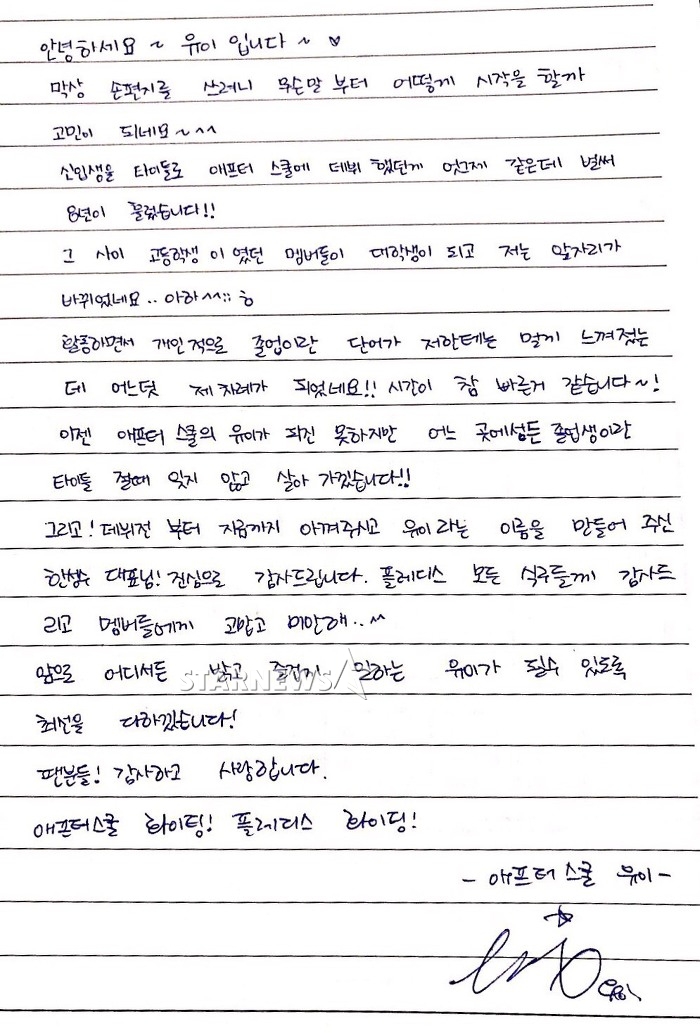 안녕하세요~ 유이 입니다~ ♥
막상 손편지를 쓰려니 무슨말 부터 어떻게 시작을 할까
고민이 되네요~^^
신입생을 타이틀로 애프터 스쿨에 데뷔 했던게 엊그제 같은데 벌써
8년이 흘렀습니다!!
그 사이 고등학생 이 였던 멤버들이 대학생이 되고 저는 앞자리가
바뀌었네요.. 아하^^;; ㅎ
활동하면서 개인적으로 졸업이란 단어가 저한테는 멀게 느껴졌는
데 어느덧 제 차례가 되었네요!! 시간이 참 빠른거 같습니다~!
이젠 애프터 스쿨의 유이가 되진 못하지만 어느 곳에섬든 졸업생이란
타이틀 절때 잊지 않고 살아 가겠습니다!!
그리고! 데뷔전 부터 지금까지 아껴주시고 유이라는 이름을 만들어 주신
한성수 대표님! 진심으로 감사드립니다. 플레디스 모든 식구들께 감사드
리고 멤버들에게 고맙고 미안해..^^
앞으로 어디서든 밝고 즐겁게 일하는 유이가 될수 있도록
STARNEWS
최선을 다하겠습니다!
팬분들! 감사하고 사랑합니다.
애프터스쿨 화이팅! 플레디스 화이팅!
- 애프터 스쿨 유이 -